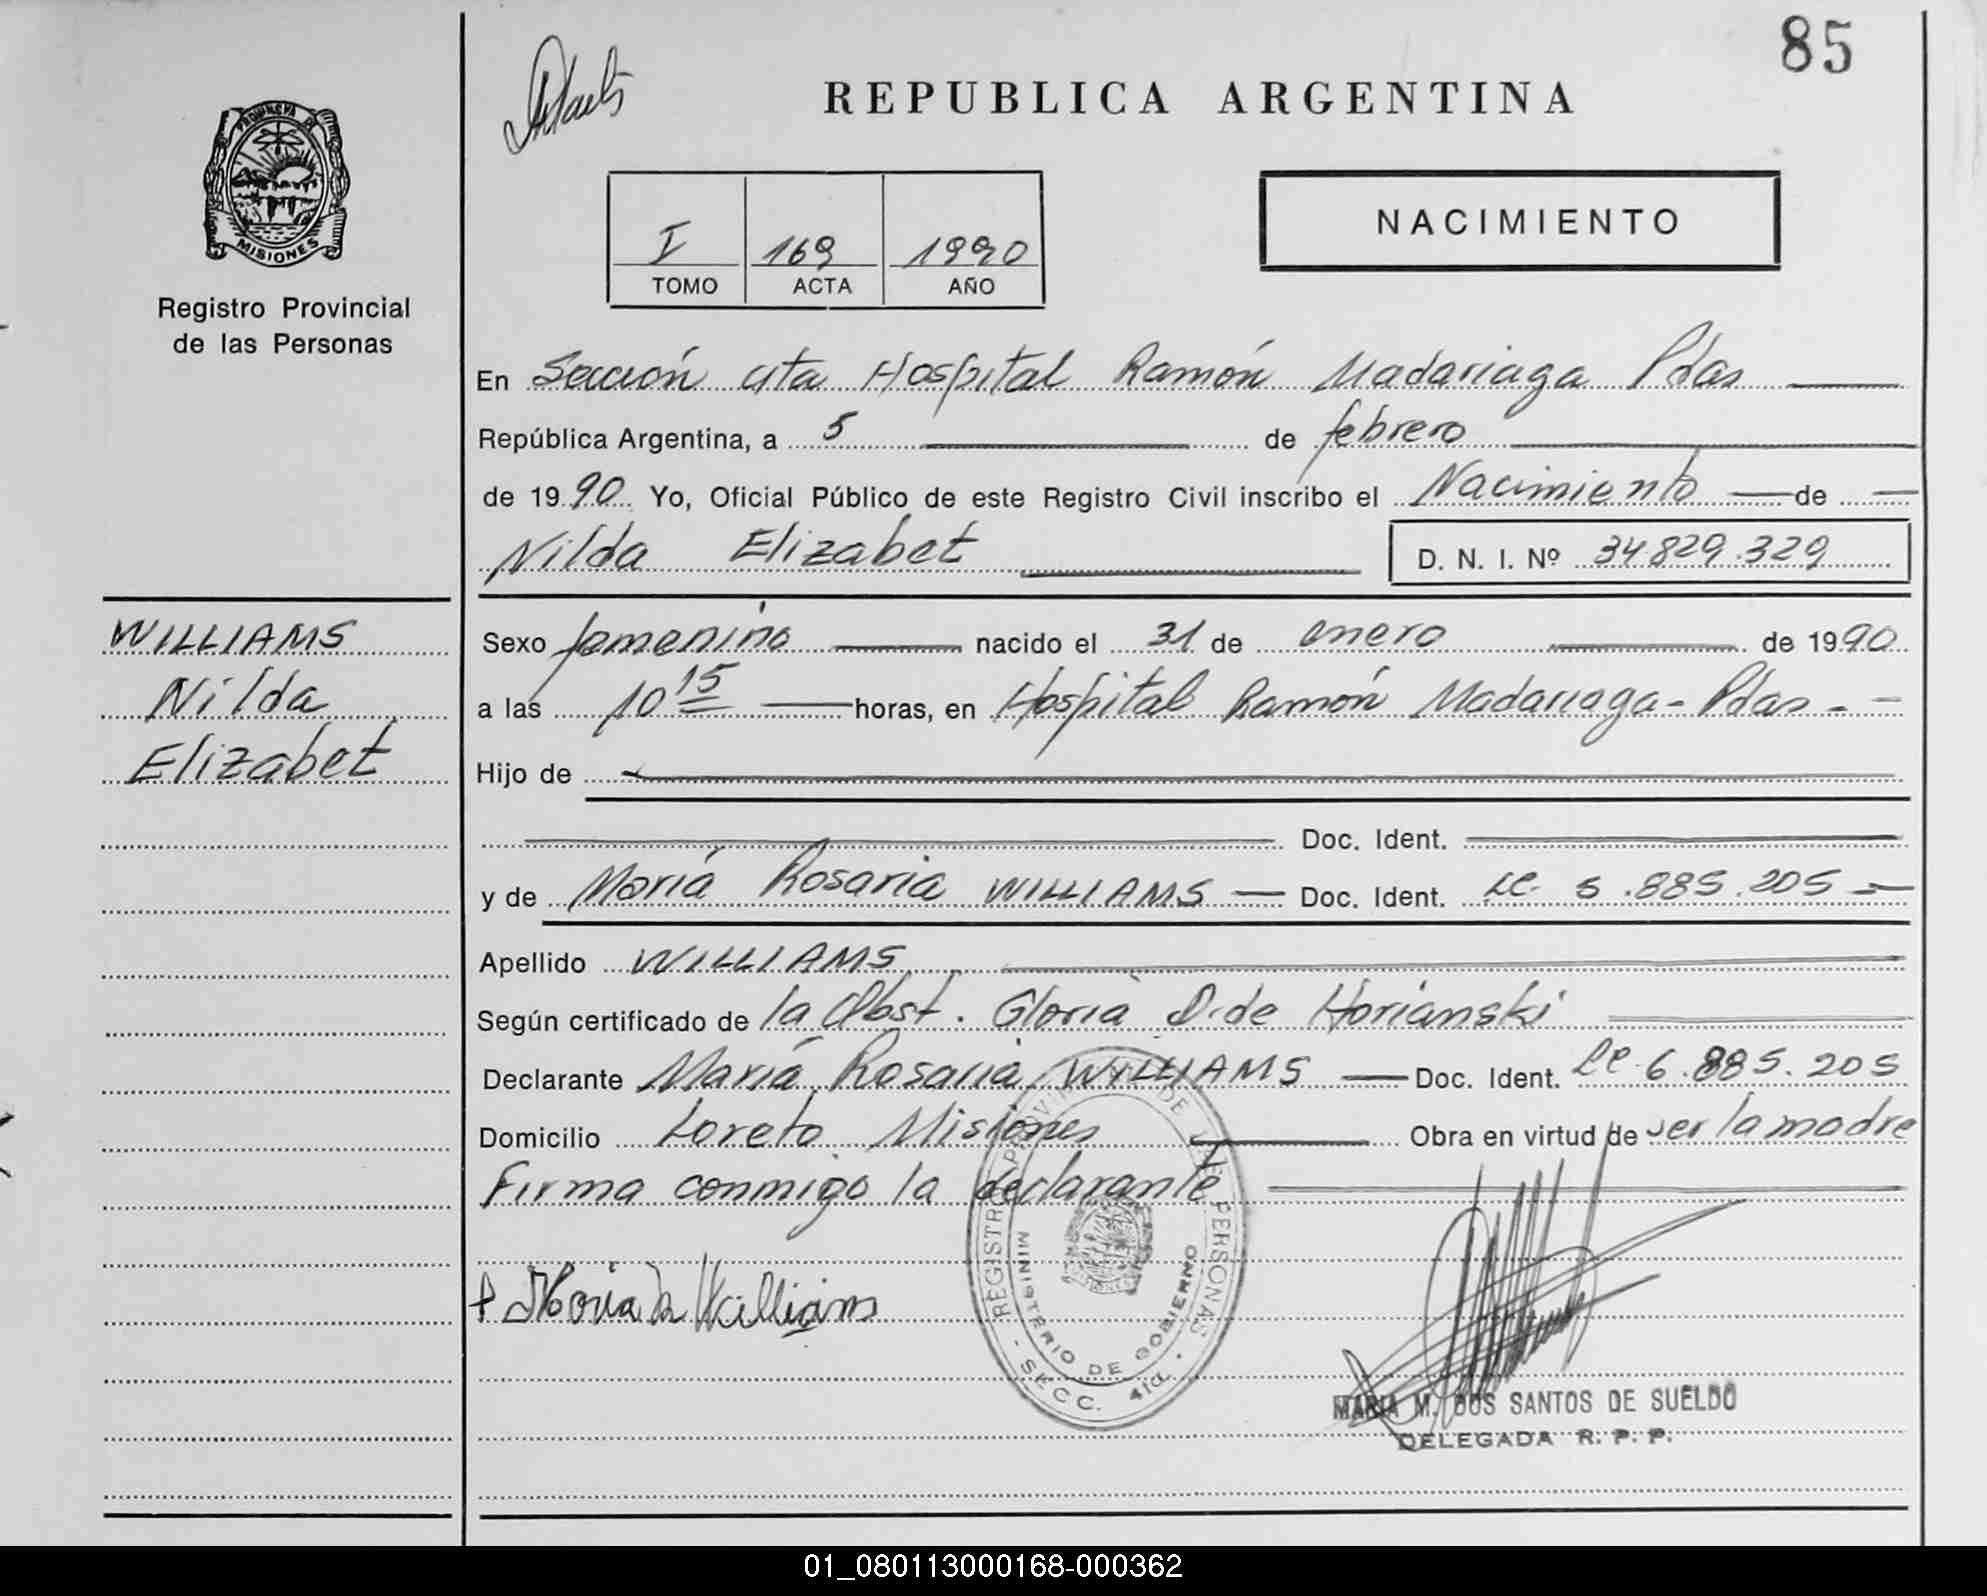 85
REPUBLICA ARGENTINA
PROVINCIA DE
MISIONES
Registro Provincial
de las Personas
I 169 1990
TOMO ACTA AÑO
NACIMIENTO
En Sección 4ta Hospital Ramón Madariaga Pdas
República Argentina, a 5 de febrero
de 1990 Yo, Oficial Público de este Registro Civil inscribo el Nacimiento de
Nilda Elizabet D. N. I. Nº 34.829.329
WILLIAMS
Nilda
Elizabet
Sexo femenino nacido el 31 de enero de 1990
a las 10 15 horas, en Hospital Ramón Madariaga - Pdas -
Hijo de
Doc. Ident.
y de Mariá Rosaria WILLIAMS Doc. Ident. LC. 5.885.205
Apellido WILLIAMS
Según certificado de la Obst. Gloria D. de Horianski
Declarante Mariá Rosaria WILLIAMS Doc. Ident. LC. 6.885.205
Domicilio Loreto Misiones Obra en virtud de ser la madre
Firma conmigo la declarante
Maria Williams
REGISTRO PROVINCIAL DE LAS PERSONAS
MINISTERIO DE GOBIERNO
- SECC. 4ta. -
MARIA M. DOS SANTOS DE SUELDO
DELEGADA R. P. P.
01_080113000168-000362